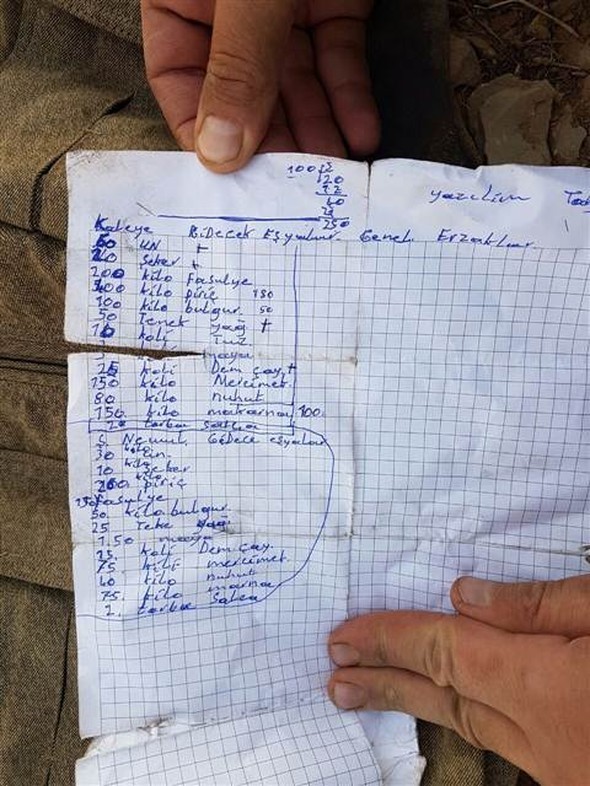 100
20
12
60
250
yazılım
Kaleye Gidecek Eşyalar. Genel Erzaklar
60 UN +
20 Şeker +
200 kilo Fasulye
kilo piriç 150
100 kilo bulgur. 50
50 Tenek yağ +
10 koli Tuz
maya
25 koli Dem çay +
150 kilo Mercimek.
80 kilo nuhut
150. kilo makarna 100.
torba salça
Gidece eşyalar
30 un.
10 şeker
kilo
200. piriç
Fasulye
50. kilo bulgur.
25 Teke yağ
1.50 maya
25. koli Dem çay.
75. mercimek.
40 kilo nuhut
75. kilo
2. torba Salça